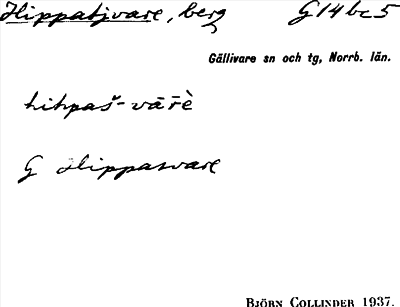 Hippatjvare, berg G14bc5
Gällivare sn och tg, Norrb. län.
hihpaš-vārè
G Hippasvare
BJÖRN COLLINDER 1937.